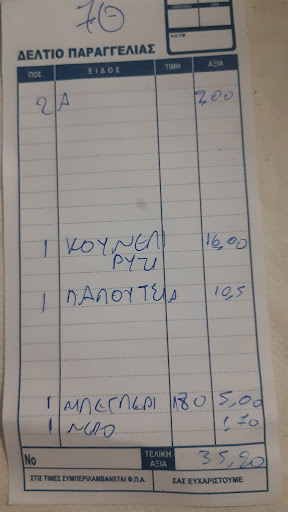 70
ΔΕΛΤΙΟ ΠΑΡΑΓΓΕΛΙΑΣ
ΠΟΣ. ΕΙΔΟΣ ΤΙΜΗ ΑΞΙΑ
2 Α 2,00
1 ΚΟΥΝΕΛΙ 16,00
ΡΥΖΙ
1 ΠΑΠΟΥΤΣΙΑ 10,5
1 ΜΠΕΓΛΕΡΙ 180 5,00
1 ΝΕΡΟ 1,70
No ΤΕΛΙΚΗ ΑΞΙΑ 35,20
ΣΤΙΣ ΤΙΜΕΣ ΣΥΜΠΕΡΙΛΑΜΒΑΝΕΤΑΙ Φ.Π.Α. ΣΑΣ ΕΥΧΑΡΙΣΤΟΥΜΕ